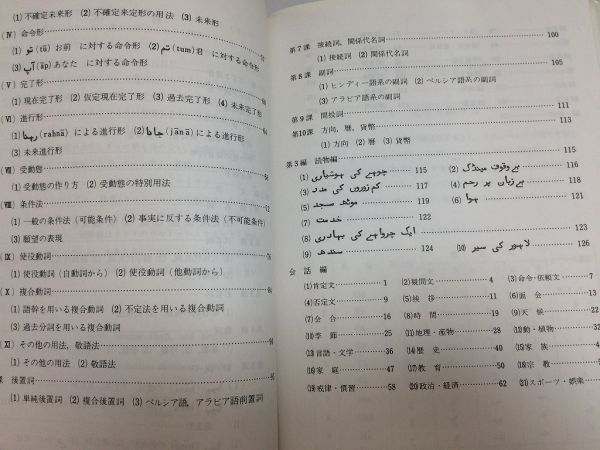 (1) 不確定未来形 (2) 不確定来定形の用法 (3) 未来形
(Ⅳ) 命令形
(1) تو (tū) お前 に対する命令形 (2) تم (tum) 君 に対する命令形
(3) آپ (āp) あなた に対する命令形
(Ⅴ) 完了形
(1) 現在完了形 (2) 仮定現在完了形 (3) 過去完了形 (4) 未来完了形
(Ⅵ) 進行形
(1) رہنا (rahnā) による進行形 (2) جانا (jānā) による進行形
(3) 未来進行形
(Ⅶ) 受動態
(1) 受動態の作り方 (2) 受動態の特別用法
(Ⅷ) 条件法
(1) 一般の条件法 (可能条件) (2) 事実に反する条件法 (不可能条件)
(3) 願望の表現
(Ⅸ) 使役動詞
(1) 使役動詞 (自動詞から) (2) 使役動詞 (他動詞から)
(Ⅹ) 複合動詞
(1) 語幹を用いる複合動詞 (2) 不定法を用いる複合動詞
(3) 過去分詞を用いる複合動詞
(Ⅺ) その他の用法, 敬語法
(1) その他の用法 (2) 敬語法
課 後置詞
(1) 単純後置詞 (2) 複合後置詞 (3) ペルシア語, アラビア語前置詞
第7課 接続詞, 関係代名詞 100
(1) 接続詞 (2) 関係代名詞
第8課 副詞 105
(1) ヒンディー語系の副詞 (2) ペルシア語系の副詞
(3) アラビア語系の副詞
第9課 間投詞 111
第10課 方向, 暦, 貨幣 113
(1) 方向 (2) 暦 (3) 貨幣
第3編 読物編 115
(1) چوہے کی ہوشیاری 115 (2) بے وقوف مینڈک 116
(3) کمزوروں کی مدد 117 (4) بے زبان پر رحم 118
(5) موٹھ مسجد 119 (6) ہوا 121
(7) خدمت 122
(8) ایک چرواہے کی بہادری 123
(9) سندھ 124 (10) لاہور کی سیر 126
会話編
(1) 肯定文 1 (2) 疑問文 4 (3) 命令・依頼文 7
(4) 否定文 9 (5) 挨拶 11 (6) 面会 13
(7) 会合 16 (8) 時間 19 (9) 天候 22
(10) 季節 25 (11) 地理・産物 28 (12) 動・植物 32
(13) 言語・文学 36 (14) 歴史 40 (15) 家族 4
(16) 家庭 47 (17) 教育 50 (18) 宗教
(19) 戒律・慣習 58 (20) 政治・経済 62 (21) スポーツ・娯楽